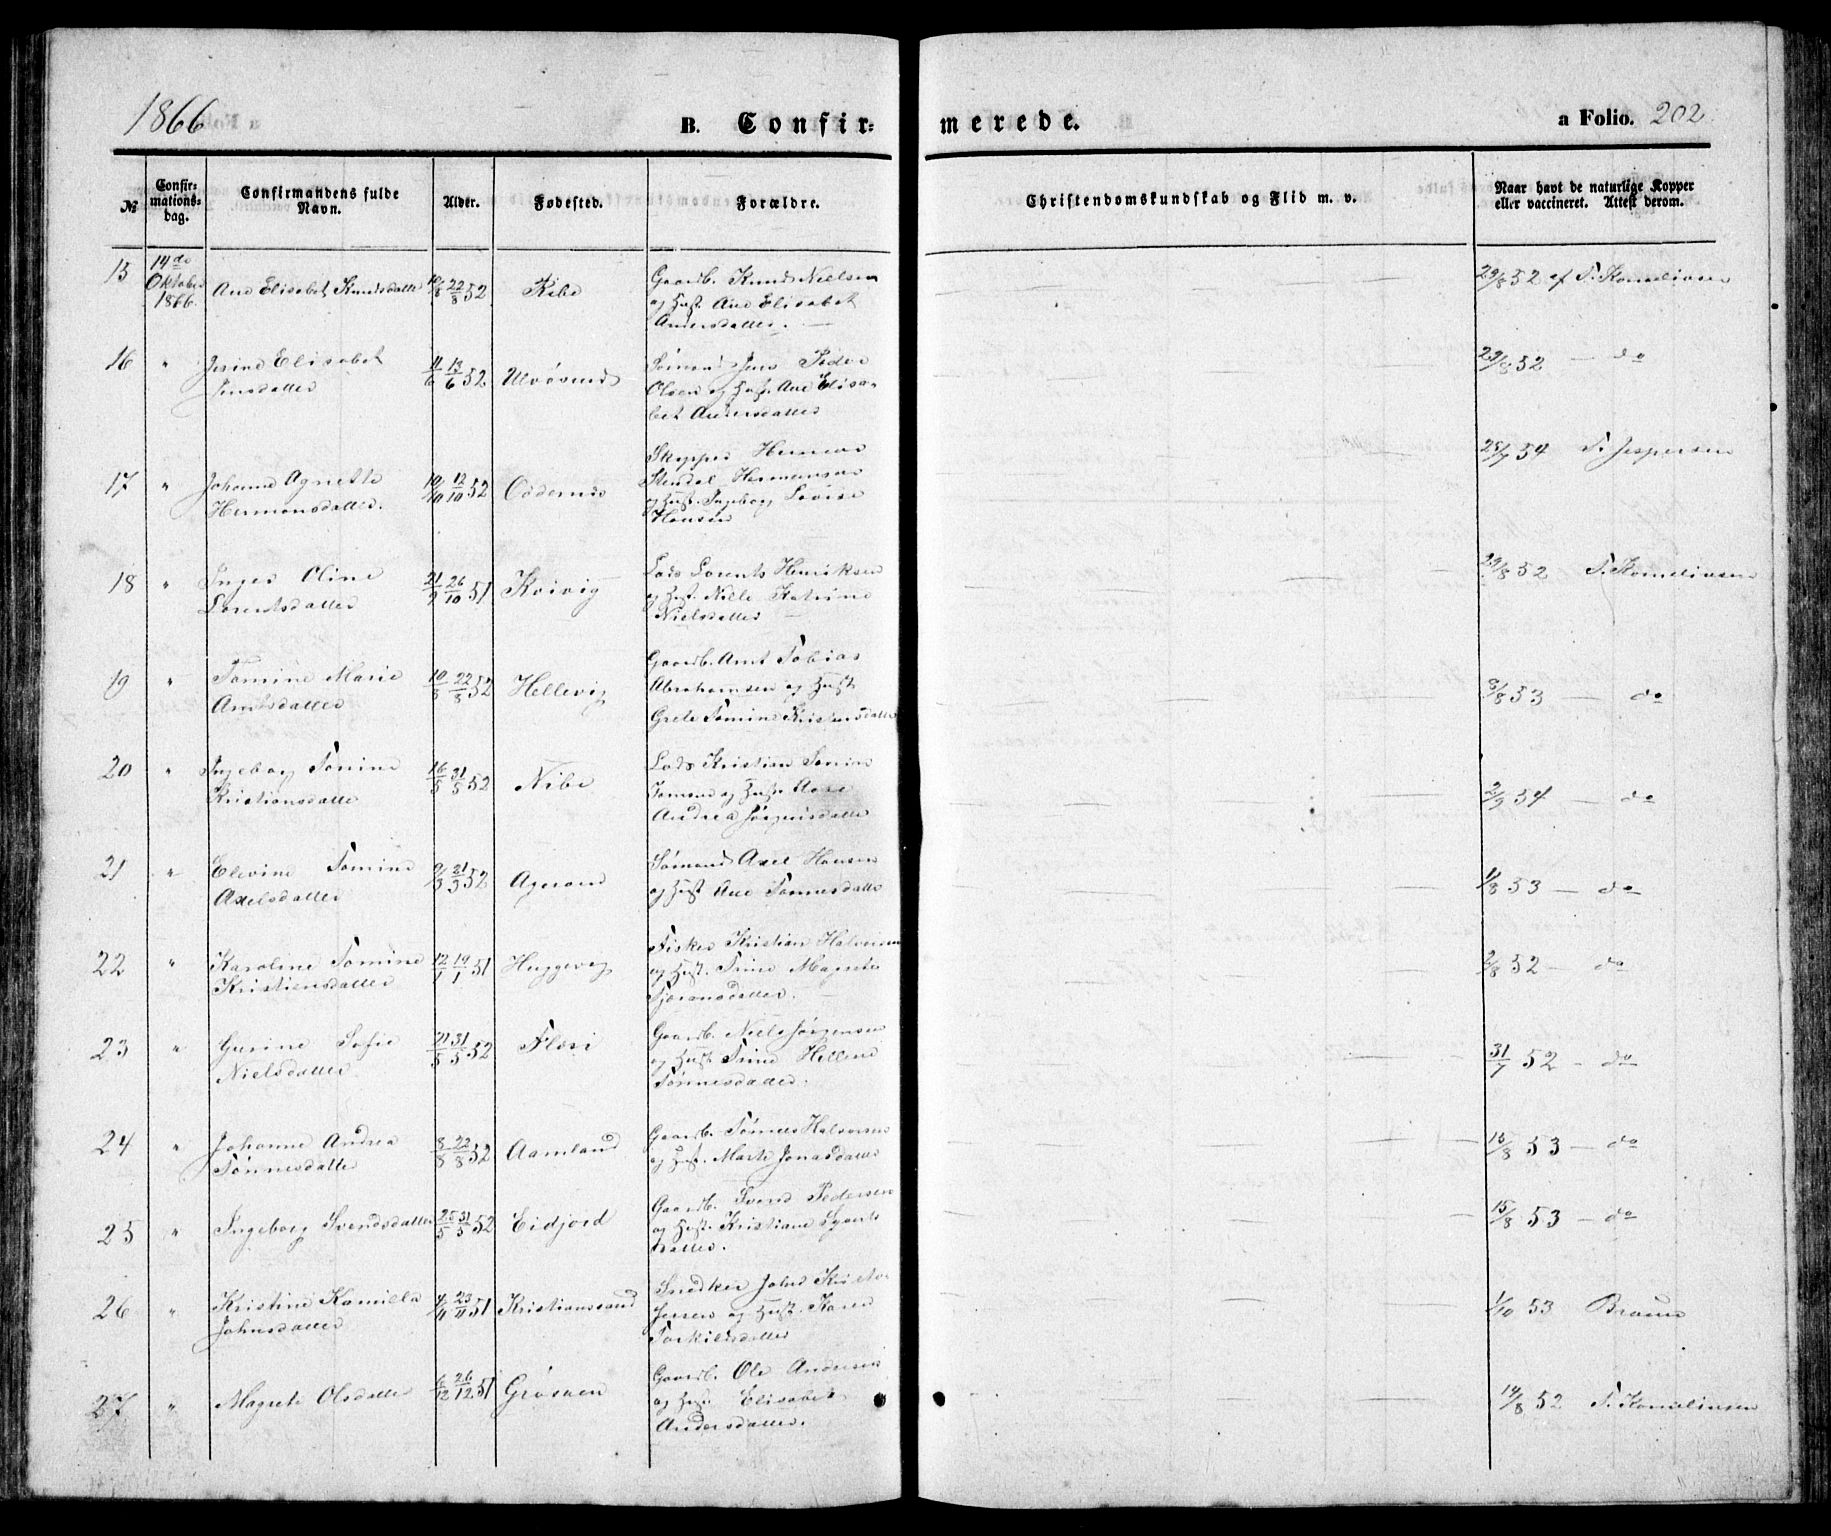 1866
B. Confir-
merede.
a Folio. 202.
№
Confir-
mations-
dag.
Confirmandens fulde
Navn.
Alder.
Fødested.
Forældre.
Christendomskundskab og Flid m. v.
Naar havt de naturlige Kopper
eller vaccineret. Attest derom.
15
14de
Oktober
1866.
Ane Elisabet Knudsdatter
22/8 52
Kibe
Gaardb. Knud Nielsen
og Hust. Ane Elisabet
Andersdatter.
29/8 52 af T. Korneliusen
16 "
Jensine Elisabet
Jensdatter
11/6 13/6 52
Ulvøsund
Sømand Jens Peder
Olsen og Hust. Ane Elisa-
bet Andersdatter
29/8 52 — do
17 "
Johanne Agnette
Hermansdatter.
10/10 12/10 52
Oddernes
Skipper Herman
Stendal Hermansen
og Hust. Ingeborg Lovise
Hansen
54 T. Jespersen
18 "
Inger Oline
Lorentsdatter
21/9 26/10 51
Kvivig
Lods Lorents Henriksen
og Hust. Nille Katrine
Nielsdatter
29/8 52 T. Korneliusen
19 "
Tomine Marie
Amtsdatter
10/8 22/8 52
Hellevig
Gaardb. Amt Tobias
Abrahamsen og Hust
Grete Tomine Kristensdatter
8/8 53 — do
20 "
Ingeborg Tonine
Kristiansdatter
16/5 31/5 52
Nibe
Lods Kristian Tonine
og Hust. Aase
Andrea Jørgensdatter
2/9 54 — do
21 "
Elevine Tomine
Axelsdatter
9/3 21/3 52
Ageroen
Sømand Axel Hansen
og Hust Ane Tønnesdatter
1/8 53 — do
22 "
Karoline Tomine
Kristiensdatter
12/1 19/1 51
Huggevig
Fisker Kristian Halvorsen
og Hust. Trine Magrete
Tjøransdatter.
2/8 52 — do
23 "
Gurine Sofie
Nielsdatter
21/5 31/5 52
Fleri
Gaardb. Niels Jørgensen
og Hust Trine Hellene
Tønnesdatter.
31/7 52 — do
24 "
Johanne Andrea
Tønnesdatter
8/8 22/8 52
Aamland
Gaardb. Tønnes Halvorsen
og Hust. Marte Jonasdatter
15/8 53 — do
25 "
Ingeborg Svendsdatter
25/5 31/5 52
Eidjord
Gaardb. Svend Pedersen
og Hust. Kristiane Sjverts
datter.
15/8 53 — do
26 "
Kristine Kamilla
Johnsdatter
4/11 23/11 51
Kristianssand
Snedker John Kristo-
fersen og Hust. Karen
Torkildsdatter
1/10 53 Braun
27 "
Magrete Olsdatter
6/12 26/12 51
Grøsnen
Gaardb. Ole Andersen
og Hust. Elisabet
Andersdatter.
14/8 52 T. Korneliusen